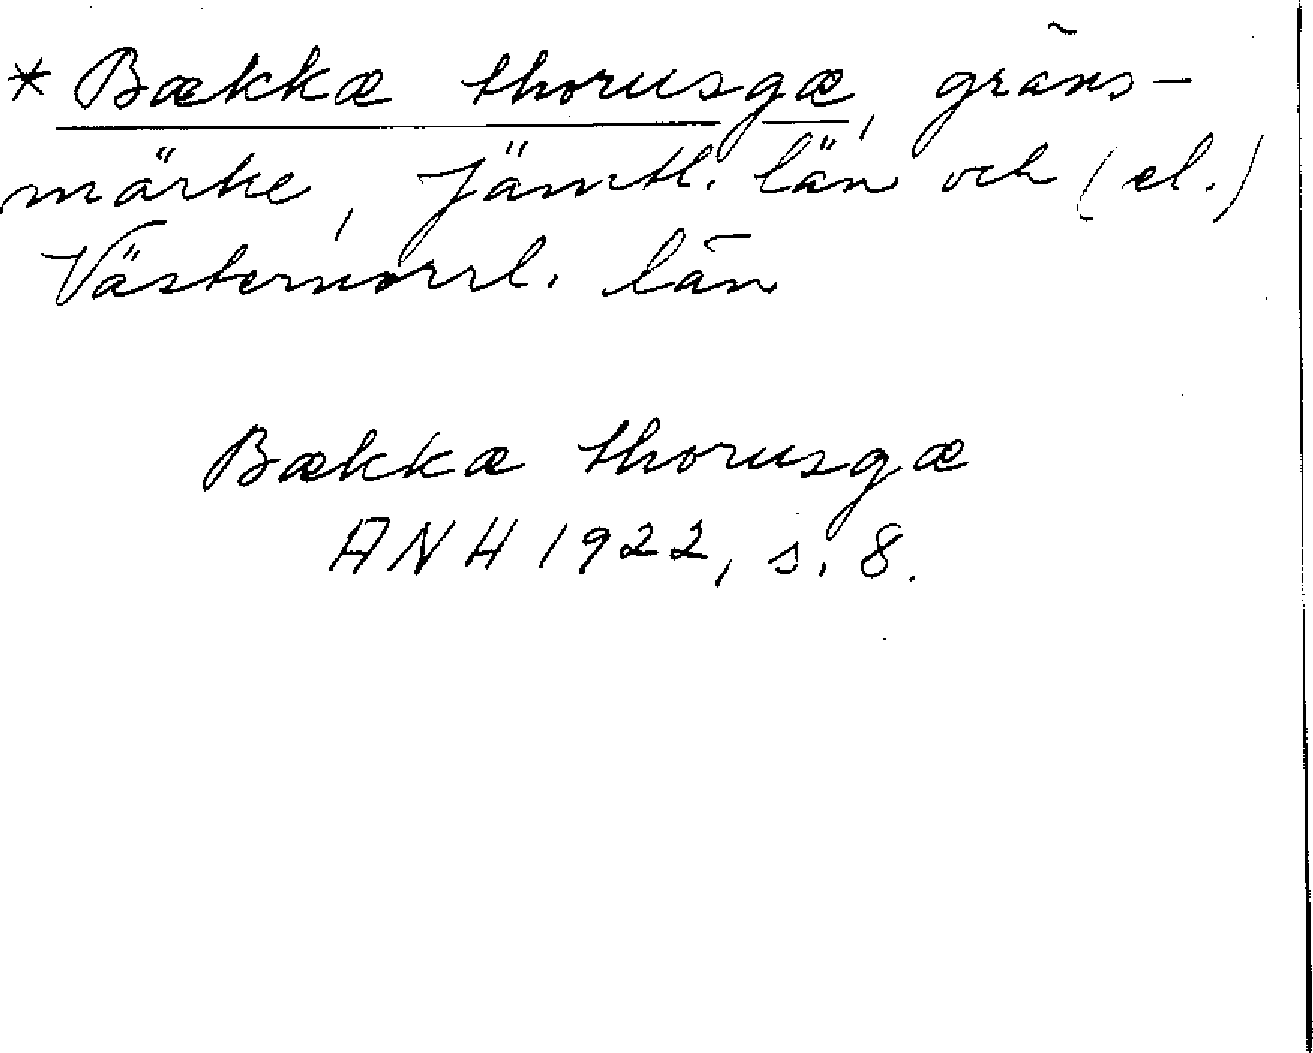 * Bækkæ thorusgæ, gräns-
märke, Jämtl. län och (el.)
Västernorrl. län
Bækkæ thorusgæ
ANH 1922, s. 8.